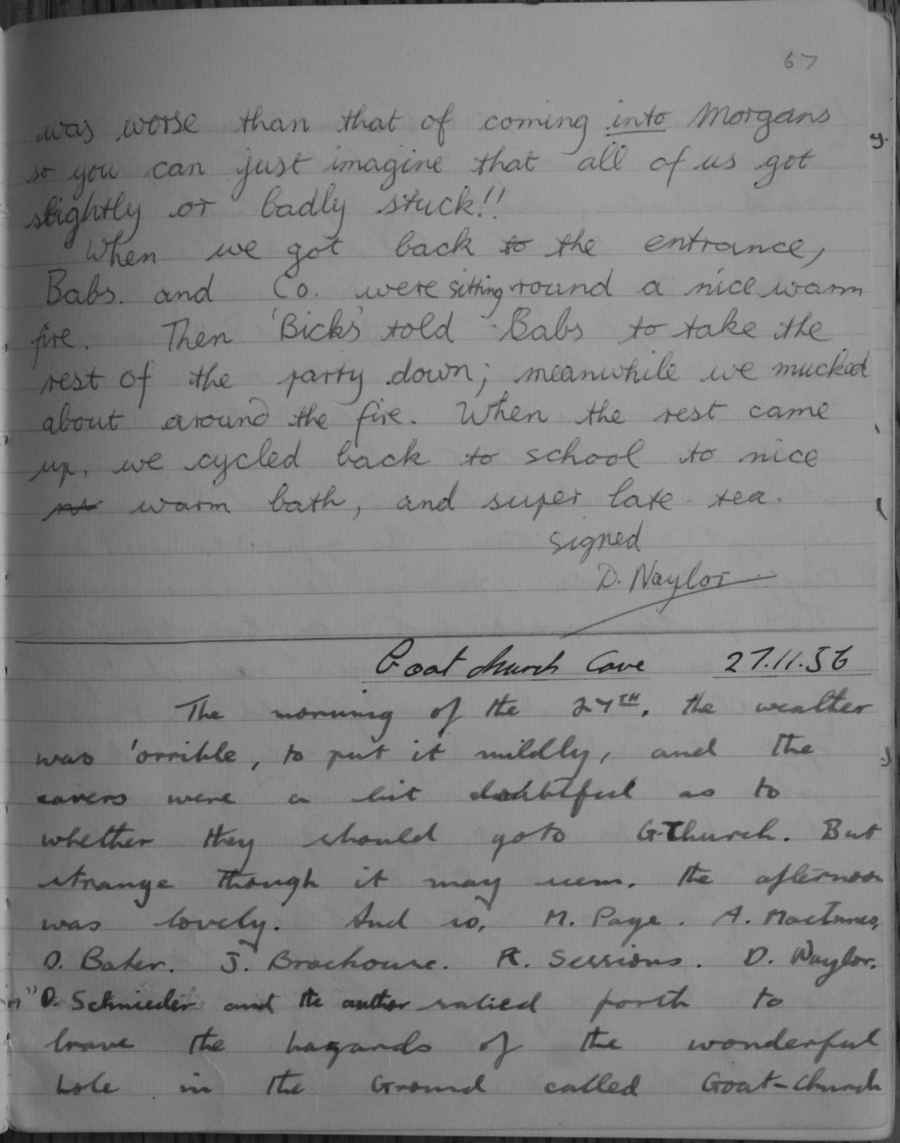 67
was worse than that of coming into Morgans
so you can just imagine that all of us got
slightly or badly stuck!!
When we got back to the entrance,
Babs. and Co. were sitting round a nice warm
fire. Then 'Bicks' told Babs to take the
rest of the party down; meanwhile we mucked
about around the fire. When the rest came
up, we cycled back to school to nice
warm bath, and super late tea.
signed
D. Naylor
Goatchurch Cave 27.11.56
The morning of the 27TH, the weather
was 'orrible, to put it mildly, and the
cavers were a bit doubtful as to
whether they should go to G-Church. But
strange though it may seem, the afternoon
was lovely. And so, M. Page. A. MacInnes,
O. Baker. J. Brackhouse. R. Sessions. D. Naylor.
D. Schnieder and the author salied forth to
brave the hazards of the wonderful
hole in the Ground called Goat-Church